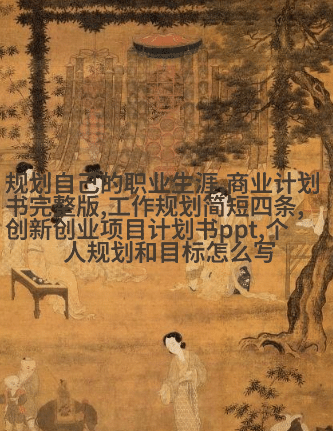 规划自己的职业生涯,商业计划
书完整版,工作规划简短四条,
创新创业项目计划书ppt,个
人规划和目标怎么写